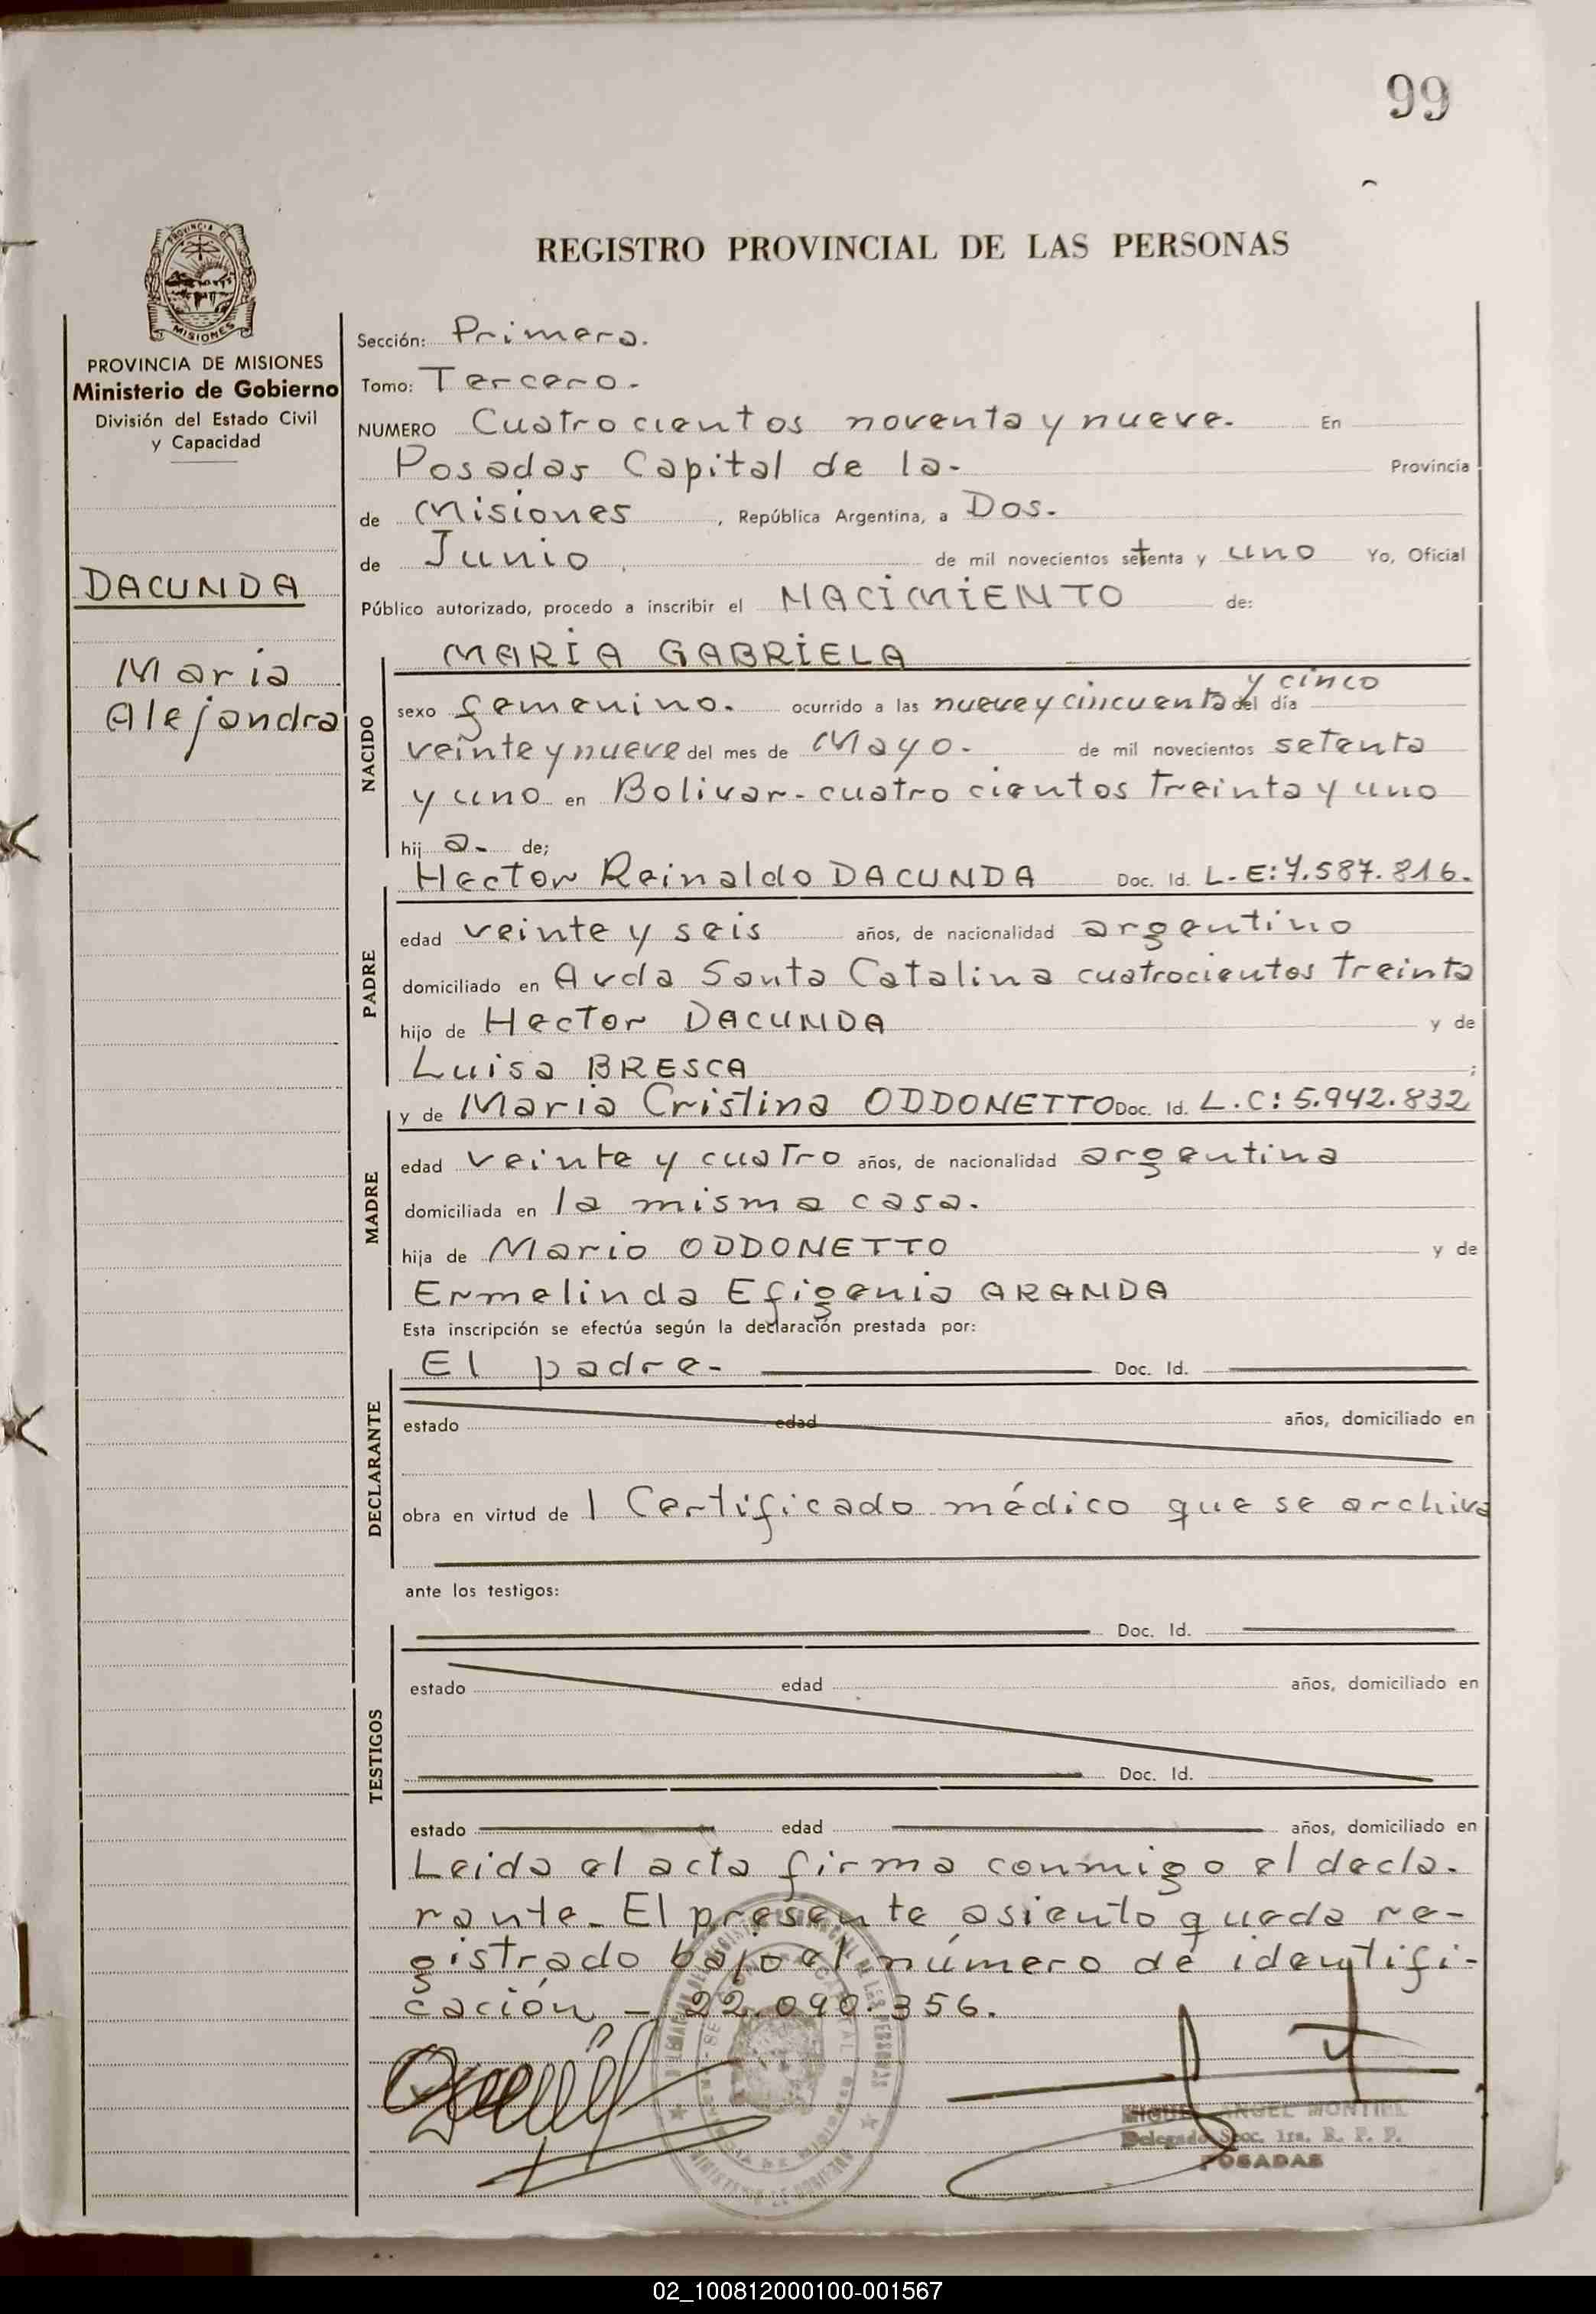 99
REGISTRO PROVINCIAL DE LAS PERSONAS
PROVINCIA DE
MISIONES
PROVINCIA DE MISIONES
Ministerio de Gobierno
División del Estado Civil
y Capacidad
DACUNDA
Maria
Alejandra
Sección: Primera.
Tomo: Tercero.
NUMERO Cuatrocientos noventa y nueve. En
Posadas Capital de la- Provincia
de Misiones , República Argentina, a Dos.
de Junio de mil novecientos setenta y uno Yo, Oficial
Público autorizado, procedo a inscribir el NACIMIENTO de:
NACIDO
MARIA GABRIELA
y cinco
sexo femenino. ocurrido a las nueve y cincuenta del día
veinte y nueve del mes de Mayo. de mil novecientos setenta
y uno en Bolivar-cuatrocientos treinta y uno
hij a. de;
PADRE
Hector Reinaldo DACUNDA Doc. Id. L.E:7.587.816.
edad veinte y seis años, de nacionalidad argentino
domiciliado en Avda Santa Catalina cuatrocientos treinta
hijo de Hector DACUNDA y de
Luisa BRESCA ;
MADRE
y de Maria Cristina ODDONETTO Doc. Id. L.C:5.942.832
edad veinte y cuatro años, de nacionalidad argentina
domiciliada en la misma casa.
hija de Mario ODDONETTO y de
Ermelinda Efigenia ARANDA
Esta inscripción se efectúa según la declaración prestada por:
DECLARANTE
El padre- Doc. Id.
estado edad años, domiciliado en
obra en virtud de 1 Certificado médico que se archiva
ante los testigos:
TESTIGOS
Doc. Id.
estado edad años, domiciliado en
Doc. Id.
estado edad años, domiciliado en
Leida el acta firma conmigo el decla-
rante. El presente asiento queda re-
gistrado bajo el número de identifi-
cación - 22.090.356.
MIGUEL ANGEL MONTIEL
Delegado Secc. 1ra. R. P. P.
POSADAS
02_100812000100-001567